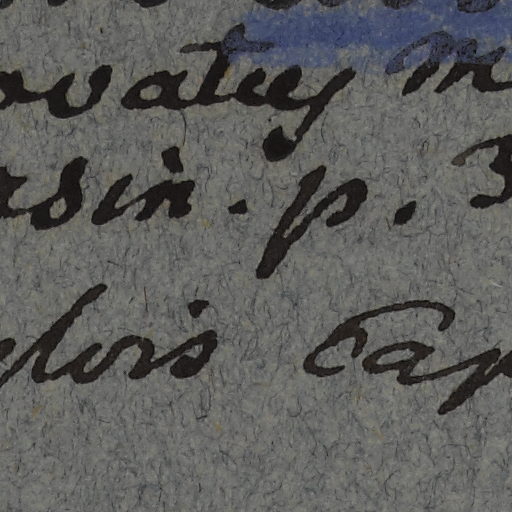 ovatus m
asin. p. 3
lois Cap